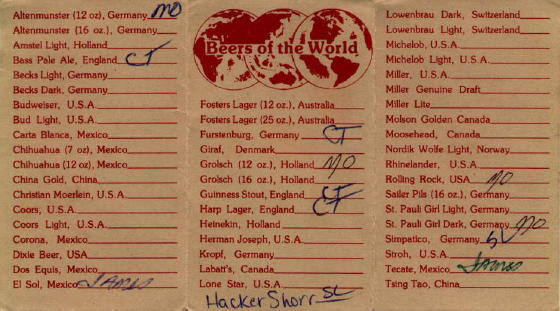 Altenmunster (12 oz), Germany MO
Altenmunster (16 oz.), Germany
Amstel Light, Holland
Bass Pale Ale, England CT
Becks Light, Germany
Becks Dark, Germany
Budweiser, U.S.A.
Bud Light, U.S.A.
Carta Blanca, Mexico
Chihuahua (7 oz), Mexico
Chihuahua (12 oz), Mexico
China Gold, China
Christian Moerlein, U.S.A.
Coors, U.S.A.
Coors Light, U.S.A.
Corona, Mexico
Dixie Beer, USA
Dos Equis, Mexico
El Sol, Mexico JAMES
Beers of the World
Fosters Lager (12 oz.), Australia
Fosters Lager (25 oz.), Australia
Furstenburg, Germany CT
Giraf, Denmark
Grolsch (12 oz.), Holland MO
Grolsch (16 oz.), Holland
Guinness Stout, England CT
Harp Lager, England CT
Heinekin, Holland
Herman Joseph, U.S.A.
Kropf, Germany
Labatt's, Canada
Lone Star, U.S.A.
Hacker Shorr SL
Lowenbrau Dark, Switzerland
Lowenbrau Light, Switzerland
Michelob, U.S.A.
Michelob Light, U.S.A.
Miller, U.S.A.
Miller Genuine Draft
Miller Lite
Molson Golden Canada
Moosehead, Canada
Nordik Wolfe Light, Norway
Rhinelander, U.S.A.
Rolling Rock, USA MO
Sailer Pils (16 oz.), Germany
St. Pauli Girl Light, Germany
St. Pauli Girl Dark, Germany MO
Simpatico, Germany SL
Stroh, U.S.A.
Tecate, Mexico JAMES
Tsing Tao, China